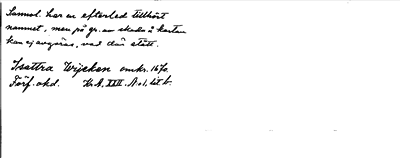 Sannol. har en efterled tillhört
namnet, men på gr. av skada å kartan
kan ej avgöras, vad där stått.
Isättra Wijcken omkr. 1670.
Förf. okd. Kr.A. XXIII. A:1, lit. b.